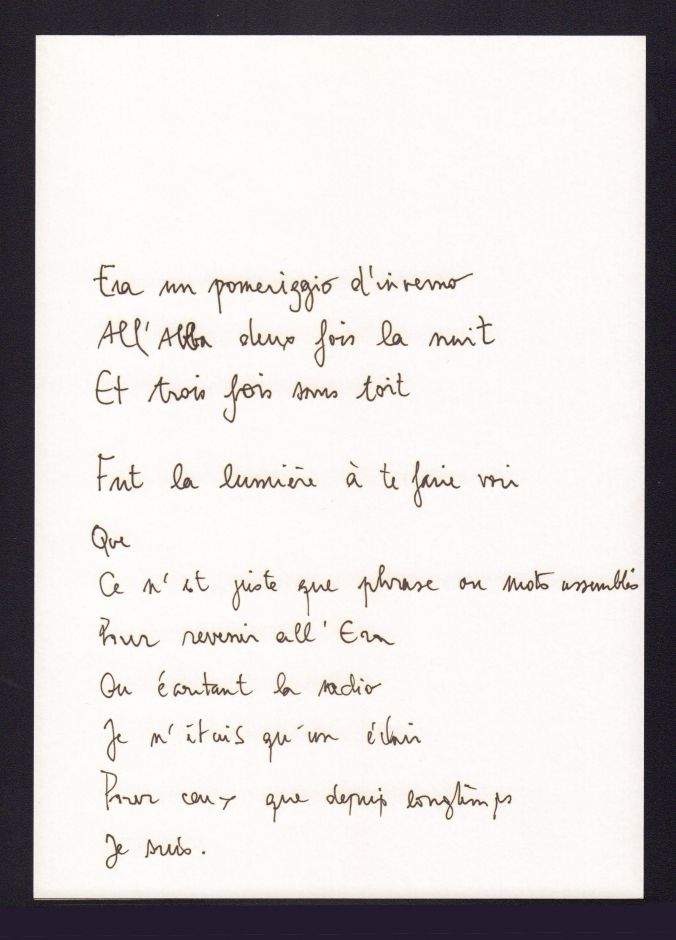 Era un pomeriggio d'inverno
All'Abba deux fois la nuit
Et trois fois sans toit
Fut la lumière à te faire voir
Que
Ce n'est juste que phrase ou mots assemblés
Pour revenir all'Era
Ou écoutant la radio
Je n'étais qu'un éclair
Pour ceux que depuis longtemps
Je suis.